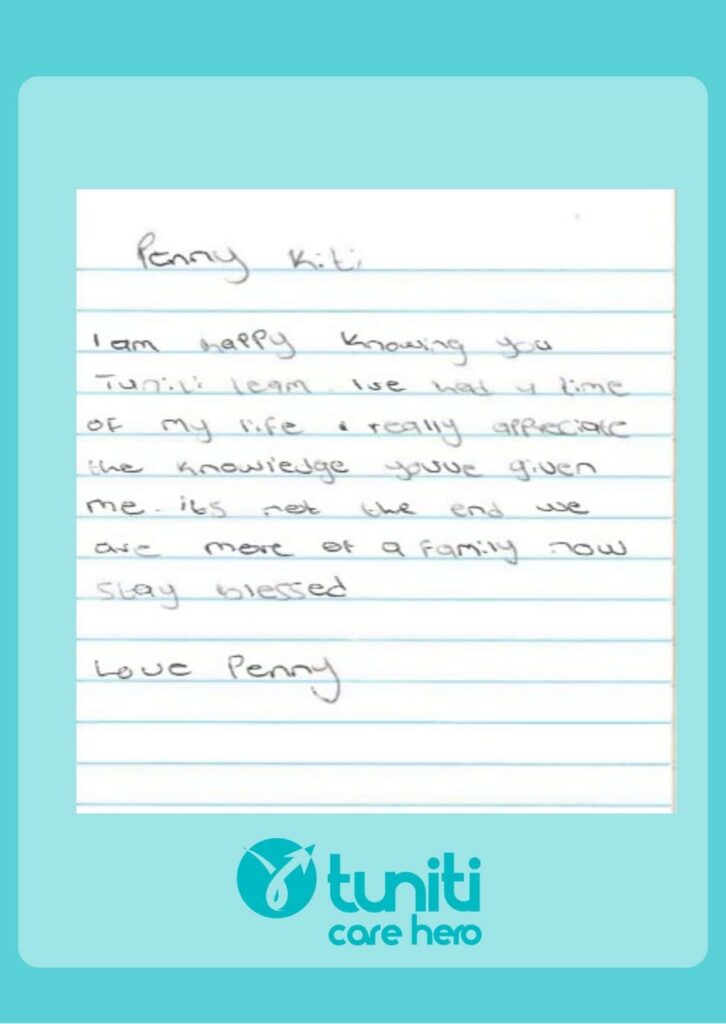 Penny Kiti
I am happy knowing you
Tuniti team. Ive had a time
of my life & really appreciate
the knowledge youve given
me. its not the end we
are more of a family now
stay blessed
Love Penny
tuniti
care hero